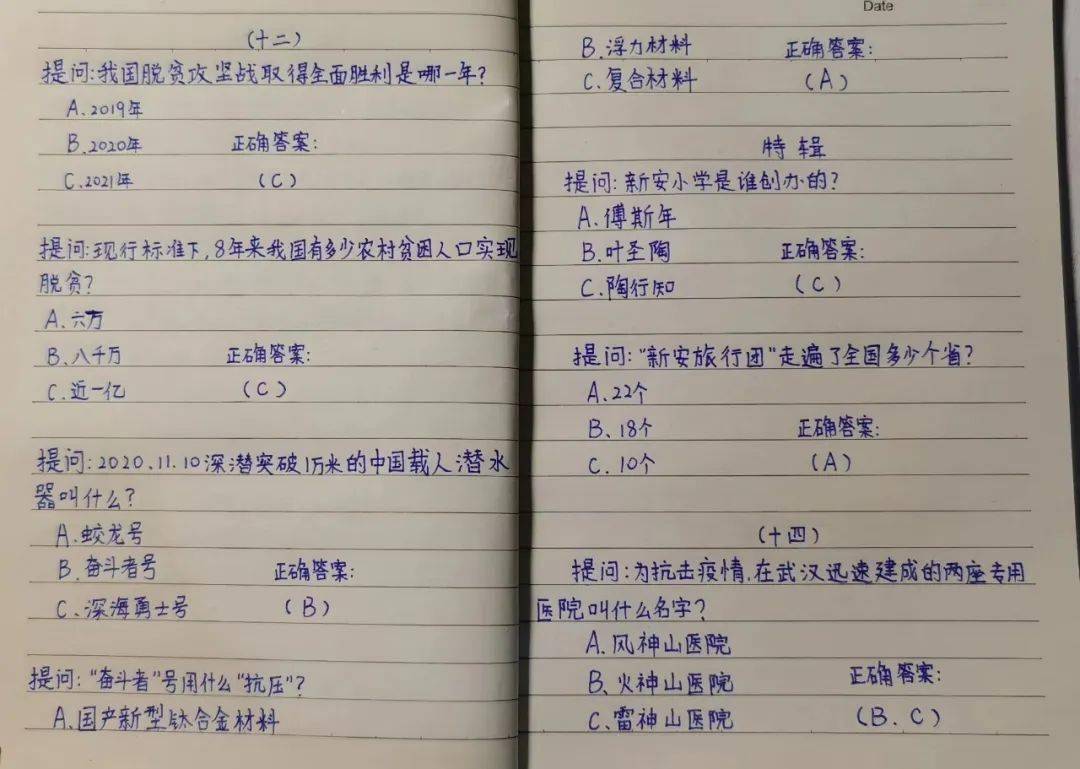 (十二)
提问:我国脱贫攻坚战取得全面胜利是哪一年?
A.2019年
B.2020年 正确答案:
C.2021年 (C)
提问:现行标准下,8年来我国有多少农村贫困人口实现
脱贫?
A.六万
B.八千万 正确答案:
C.近一亿 (C)
提问:2020.11.10深潜突破1万米的中国载人潜水
器叫什么?
A.蛟龙号
B.奋斗者号 正确答案:
C.深海勇士号 (B)
提问:"奋斗者"号用什么"抗压"?
A.国产新型钛合金材料
Date
B.浮力材料 正确答案:
C.复合材料 (A)
特辑
提问:新安小学是谁创办的?
A.傅斯年
B.叶圣陶 正确答案:
C.陶行知 (C)
提问:"新安旅行团"走遍了全国多少个省?
A.22个
B、18个 正确答案:
C.10个 (A)
(十四)
提问:为抗击疫情,在武汉迅速建成的两座专用
医院叫什么名字?
A.风神山医院
B、火神山医院 正确答案:
C.雷神山医院 (B.C)